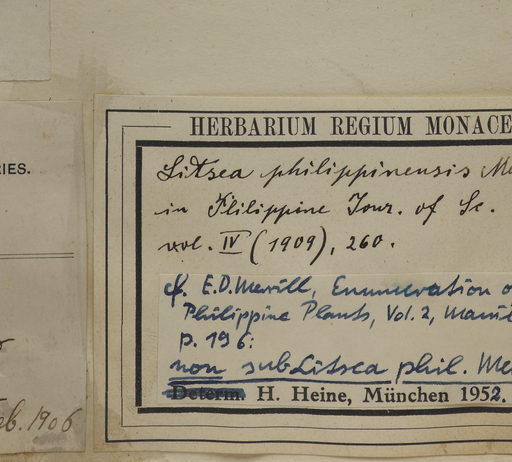 HERBARIUM REGIUM MONACE
Litsea philippinensis Me
in Philippine Jour. of Sc.
vol. IV (1909), 260.
cf. E.D. Merrill, Enumeration o
Philippine Plants, Vol. 2, Manil
p. 196:
non sub Litsea phil. Me
Determ. H. Heine, München 1952.
RIES.
eb. 1906